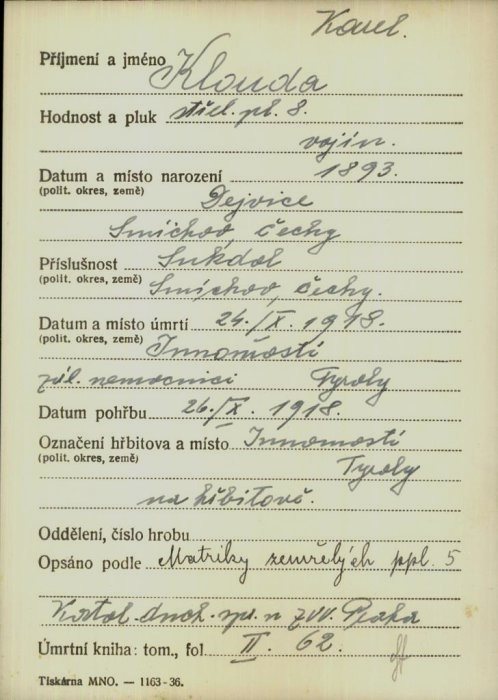 Karel.
Příjmení a jméno Klouda
Hodnost a pluk střel. pl. 8.
vojín.
Datum a místo narození 1893.
(polit. okres, země) Dejvice
Smíchov, Čechy
Příslušnost Sukdol
(polit. okres, země) Smíchov, Čechy.
Datum a místo úmrtí 24./X. 1918.
(polit. okres, země) Innomostí
zál. nemocnici Tyroly
Datum pohřbu 26./X. 1918.
Označení hřbitova a místo Innomostí
(polit. okres, země) Tyroly
na hřbitově.
Oddělení, číslo hrobu
Opsáno podle Matriky zemřelých ppl. 5
Katol. duch. sp. n ZVV. Praha
Úmrtní kniha: tom., fol II. 62.
Tiskárna MNO. — 1163-36.